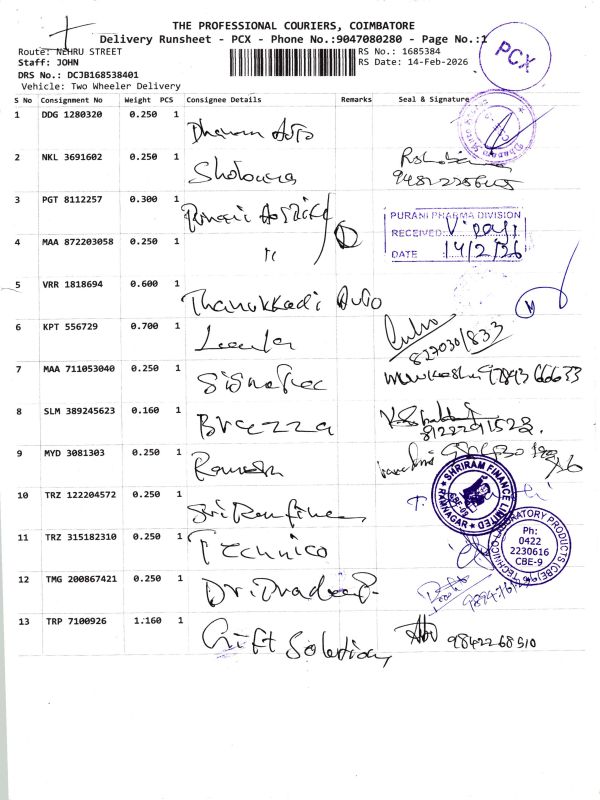 THE PROFESSIONAL COURIERS, COIMBATORE
Delivery Runsheet - PCX - Phone No.:9047080280 - Page No.:1
Route: NEHRU STREET
RS No.: 1685384
Staff: JOHN
RS Date: 14-Feb-2026
DRS No.: DCJB168538401
Vehicle: Two Wheeler Delivery
PCX
S No Consignment No Weight PCS Consignee Details Remarks Seal & Signature
1 DDG 1280320 0.250 1 Auto
2 NKL 3691602 0.250 1
3 PGT 8112257 0.300 1
PURANI PHARMA DIVISION
RECEIVED:
DATE : 14/2/26
4 MAA 872203058 0.250 1 "
5 VRR 1818694 0.600 1 Thanukkadi Auto
6 KPT 556729 0.700 1
7 MAA 711053040 0.250 1 97843 66633
8 SLM 389245623 0.160 1 Brezza 8122291522.
9 MYD 3081303 0.250 1 Ramesh
SHRIRAM FINANCE LIMITED
RAMNAGAR
10 TRZ 122204572 0.250 1 Sri Ram finance
11 TRZ 315182310 0.250 1 Technico
TECHNICO LABORATORY PRODUCTS (CBE)
Ph:
0422
2230616
CBE-9
12 TMG 200867421 0.250 1 Dr. Pradeep
13 TRP 7100926 1.160 1 Gift Solution 9842268510